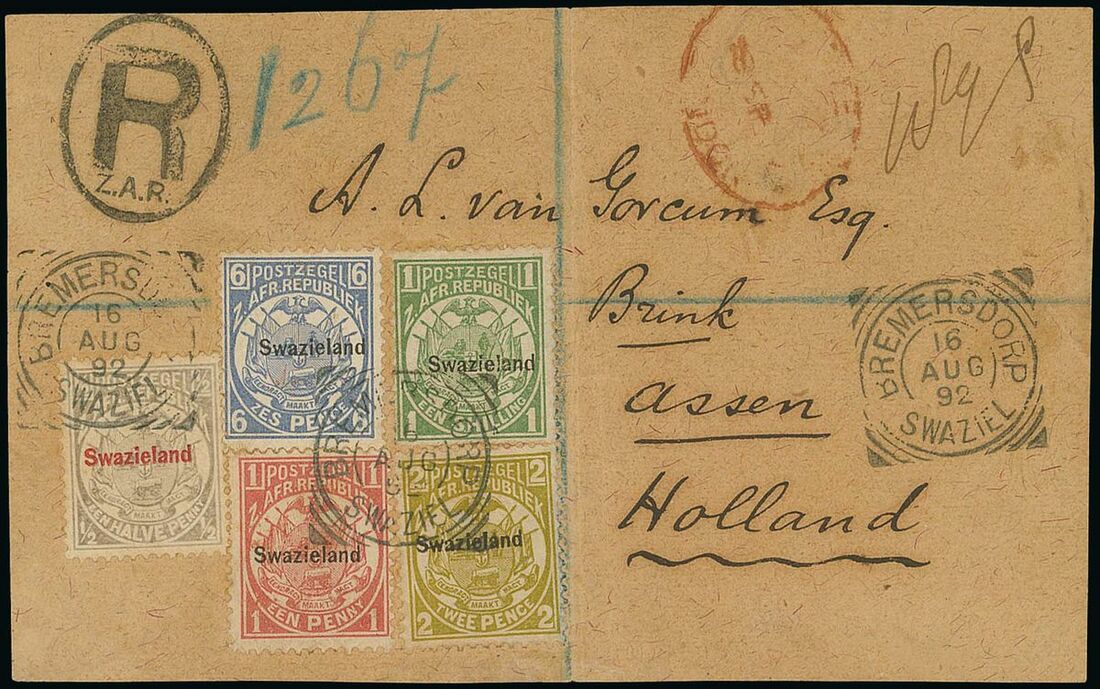 R
Z.A.R.
1267
A. L. van Gorcum Esq.
Brink
Assen
Holland
BREMERSDORP
16
AUG
92
SWAZIEL
BREMERSDORP
16
AUG
92
SWAZIEL
6 6
POSTZEGEL
AFR. REPUBLIEK
Swazieland
ZES PENCE
6 6
1 1
POSTZEGEL
AFR. REPUBLIEK
Swazieland
EEN SHILLING
1 1
POSTZEGEL
1/2
Swazieland
EENDRAGT MAAKT MAGT
EEN HALVE PENNY
1/2 1/2
1 1
POSTZEGEL
AFR. REPUBLIEK
Swazieland
EENDRAGT MAAKT MAGT
EEN PENNY
1 1
2 2
POSTZEGEL
AFR. REPUBLIEK
Swazieland
EENDRAGT MAAKT MAGT
TWEE PENCE
2 2
BREMERSDORP
AUG
SWAZIEL